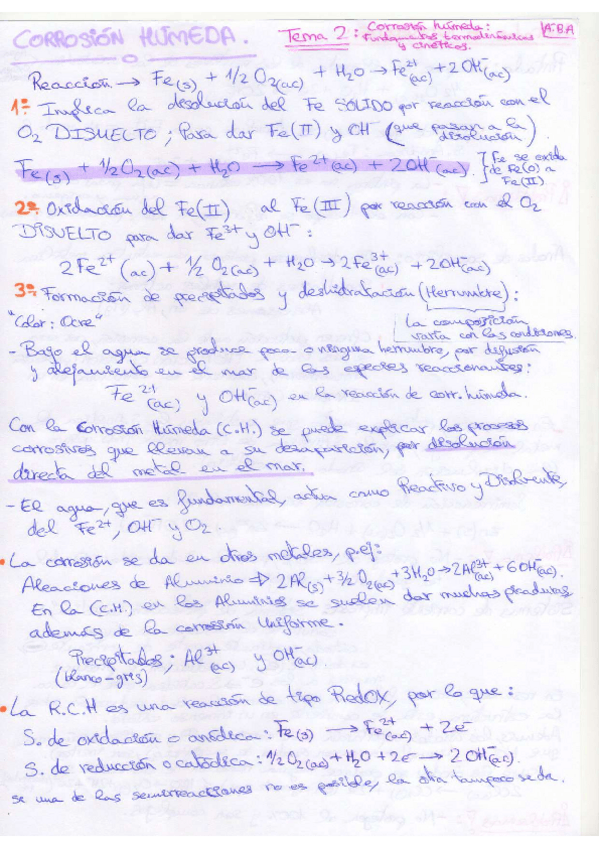 CORROSIÓN HÚMEDA.
Tema 2: Corrosión húmeda:
Fundamentos termodinámicos
y cinéticos.
A·B·A
Reacción → Fe(s) + 1/2 O2(ac) + H2O → Fe2+(ac) + 2OH-(ac)
1º: Implica la disolución del Fe SÓLIDO por reacción con el
O2 DISUELTO; Para dar Fe(II) y OH- (que pasan a la
disolución).
Fe(s) + 1/2 O2(ac) + H2O → Fe2+(ac) + 2OH-(ac). Fe se oxida
de Fe(0) a
Fe(II).
2º: Oxidación del Fe(II) al Fe(III) por reacción con el O2
DISUELTO para dar Fe3+ y OH-:
2Fe2+(ac) + 1/2 O2(ac) + H2O → 2Fe3+(ac) + 2OH-(ac)
3º: Formación de precipitados y deshidratación (Herrumbre):
"Color: Ocre"
La composición
varía con las condiciones.
- Bajo el agua se produce poca o ninguna herrumbre, por difusión
y alejamiento en el mar de las especies reaccionantes:
Fe2+(ac) y OH-(ac) en la reacción de corr. húmeda.
Con la Corrosión Húmeda (C.H.) se puede explicar los procesos
corrosivos que llevan a su desaparición, por disolución
directa del metal en el mar.
- El agua, que es fundamental, actua como Reactivo y Disolvente,
del Fe2+, OH- y O2.
• La corrosión se da en otros metales, p.ej:
Aleaciones de Aluminio ⇒ 2Al(s) + 3/2 O2(ac) + 3H2O → 2Al3+(ac) + 6OH-(ac).
En la (C.H.) en los Aluminios se suelen dar muchas picaduras,
además de la corrosión Uniforme.
Precipitados: Al3+(ac) y OH-(ac)
(blanco-gris)
• La R.C.H es una reacción de tipo RedOX, por lo que:
S. de oxidación o anódica: Fe(s) → Fe2+(ac) + 2e-
S. de reducción o catódica: 1/2 O2(ac) + H2O + 2e- → 2OH-(ac).
si una de las semirreacciones no es posible, la otra tampoco se da.